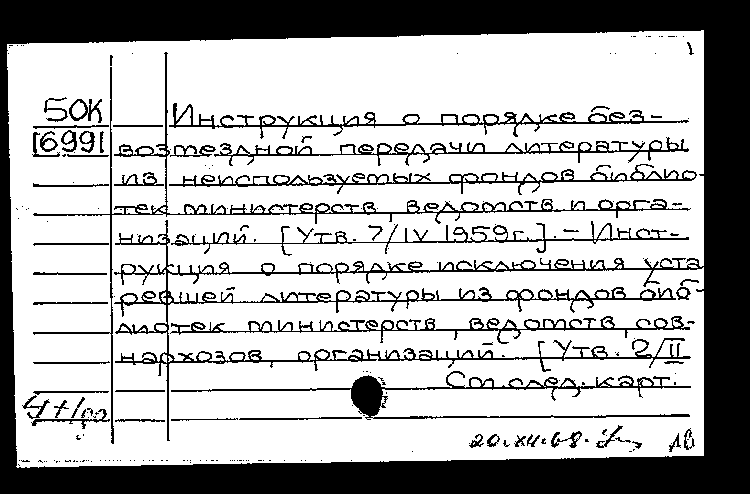 1
50К
1699 Инструкция о порядке без-
возмездной передачи литературы
из неиспользуемых фондов библио-
тек министерств, ведомств и орга-
низаций. [Утв. 7/IV 1959г.]. – Инст-
рукция о порядке исключения уста
ревшей литературы из фондов биб-
лиотек министерств, ведомств, сов-
нархозов, организаций. [Утв. 2/II
См. след. карт.
20.XII.68.